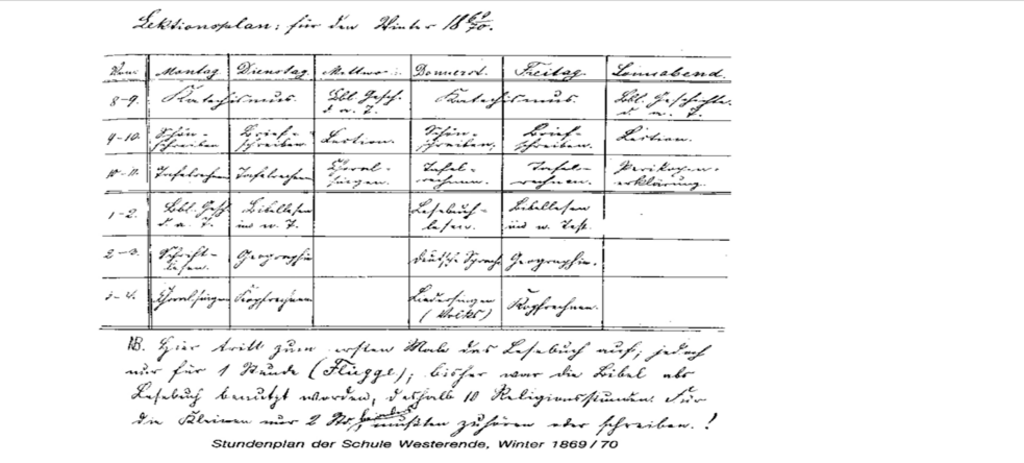 Lektionsplan: für den Winter 18 69/70.
Montag Dienstag Mittwo Donnerst. Freitag. Sonnabend.
8-9. Katechismus. Bbl. Gesch. d. a. T. Katechismus. Bbl. Geschichte. d. a. T.
9-10. Schön-schreiben Brief-schreiben Lection. Schön-schreiben. Brief-schreiben. Lection.
10-11. Tafelrechnen Tafelrechnen Choral-singen. Tafel-rechnen. Tafel-rechnen. Perikopen-erklärung.
1-2. Bbl. Gesch. d. a. T. Bibellesen im n. T. Lesebuch-lesen. Bibellesen im n. Test.
2-3. Schrift-lesen. Geographie deutsche Sprache Geographie.
3-4. Choralsingen Kopfrechnen Liedersingen (Volks) Kopfrechnen.
NB. Hier tritt zum ersten Male das Lesebuch auf; jedoch
nur für 1 Stunde (Flügge); bisher war die Bibel als
Lesebuch benutzt worden, deshalb 10 Religionsstunden. Für
die Kleinen nur 2 Std., mußten zuhören oder schreiben.!
Stundenplan der Schule Westerende, Winter 1869/70